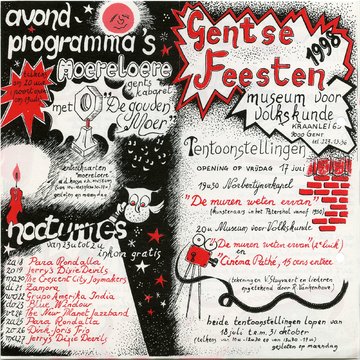 avond
programma's
15
Moereloere
gents
kabaret
met
"De gouden
Moer"
nocturnes
van 23 tot 24
inkom gratis
za 18 Para Rondalla
zo 19 Jerry's Dixie Devils
ma 20 The Crescent City Joymakers
di 21 Zanora
wo 22 Grupo Amerika India
do 23 Blue Window
vr 24 The New Planet Jazzband
za 25 Para Rondalla
zo 26 Dirk Joris Trio
ma 27 Jerry's Dixie Devils
Gentse
Feesten
1998
museum voor
Volkskunde
KRAANLEI 65
9000 Gent
Tentoonstellingen
OPENING OP VRIJDAG 17 juli
19u30 Norbertijnerkapel
"De muren weten ervan"
20u Museum voor Volkskunde
"De muren weten ervan" (2e luik)
en
"Cinéma Pathé, 15 cens entrée"
beide tentoonstellingen lopen van
18 juli t.e.m. 31 oktober
gesloten op maandag